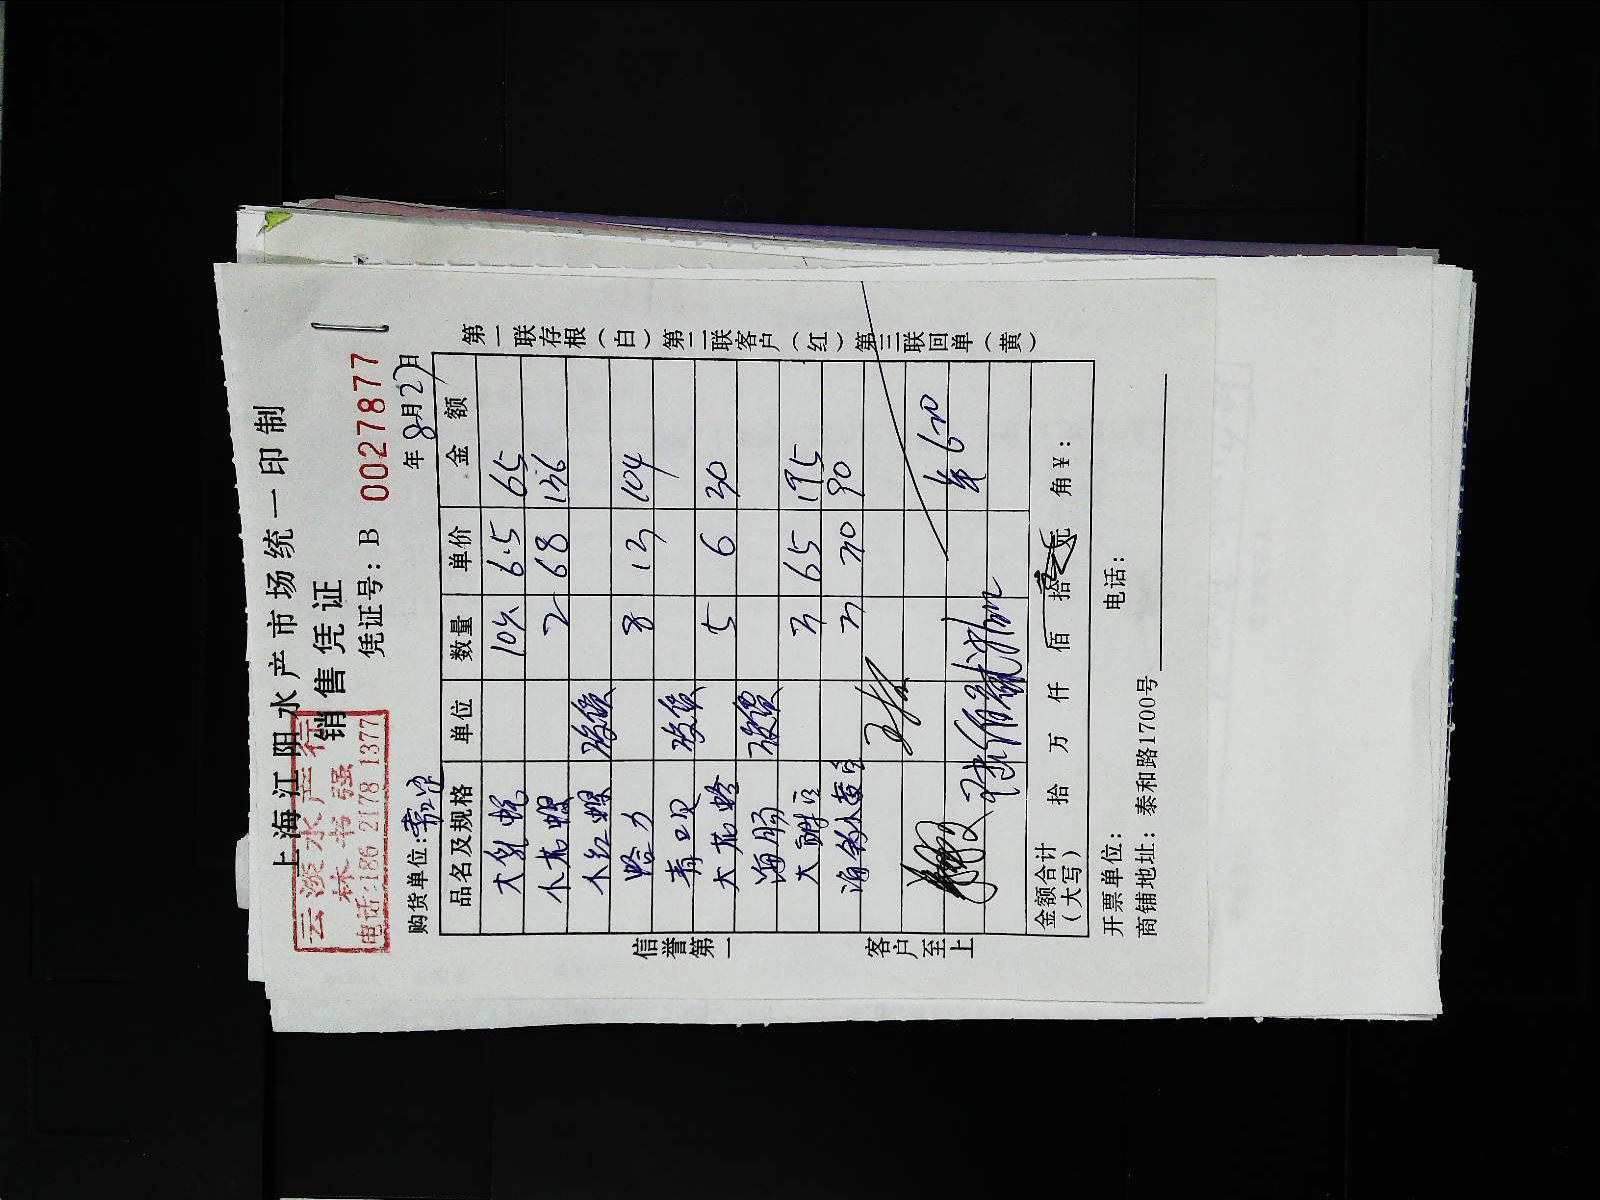 上海江阳水产市场统一印制
销售凭证
云 水产行
林书强
电话:186 2178 1377
凭证号: B 0027877
购货单位: 年8月27日
品名及规格 单位 数量 单价 金额
大 10 6.5 65
小 2 68 136
小红螺
蛤 8 13 104
青口贝
大花蛤 5 6 30
海肠
大 3 65 195
海 3 30 90
600
金额合计(大写) 拾 万 仟 佰 拾 元 角 ¥:
开票单位: 电话:
商铺地址: 泰和路1700号
第一联存根(白)第二联客户(红)第三联回单(黄)
信誉第一 客户至上